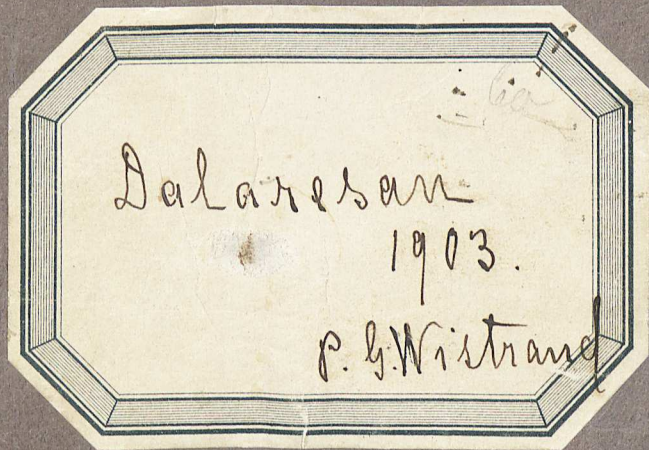 Dalaresan
1903.
P. G. Wistrand